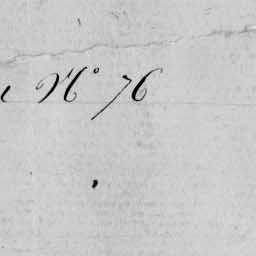 N° 76